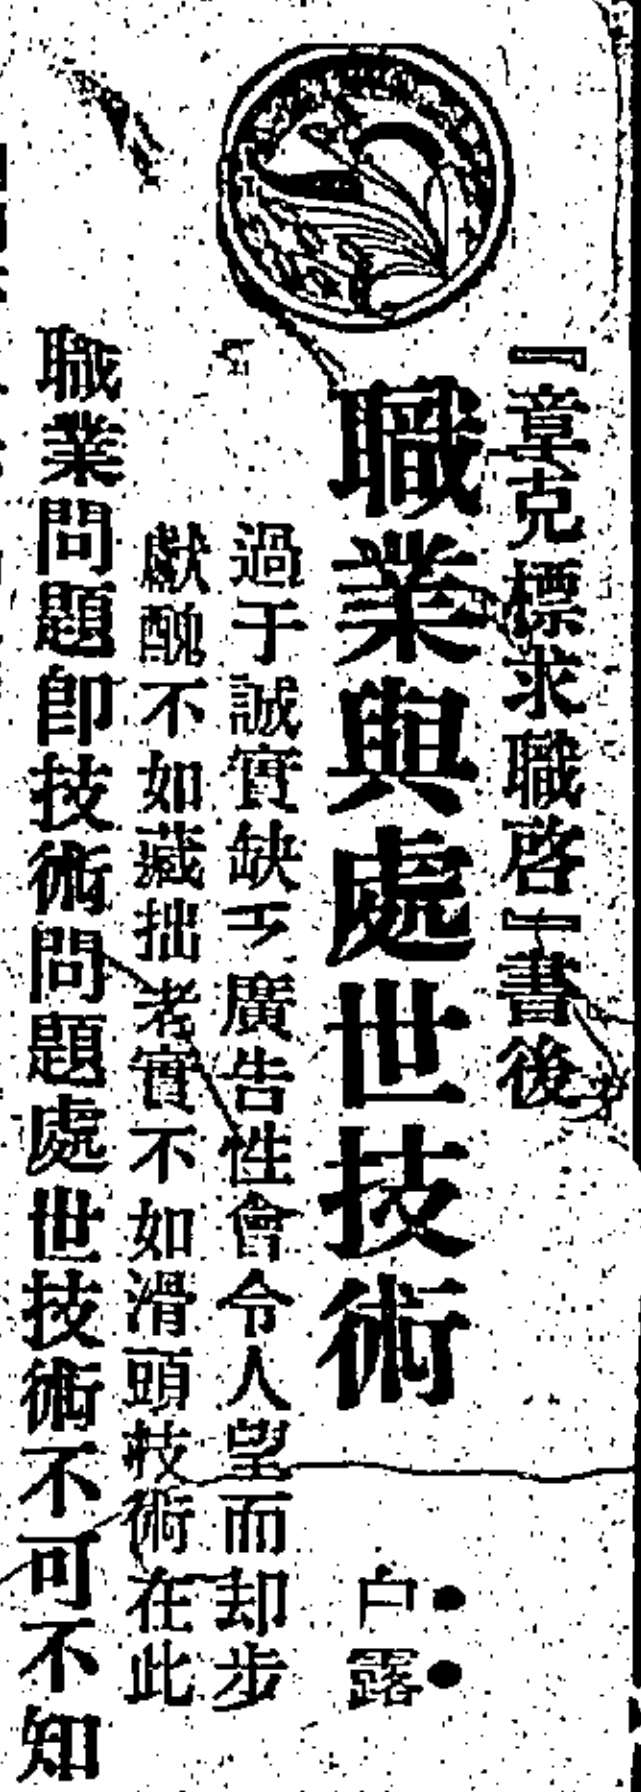 『章克標求職啓』書後
職業與處世技術
白露
過于誠實缺乏廣告性會令人望而却步
獻醜不如藏拙老實不如滑頭技術在此
職業問題卽技術問題處世技術不可不知